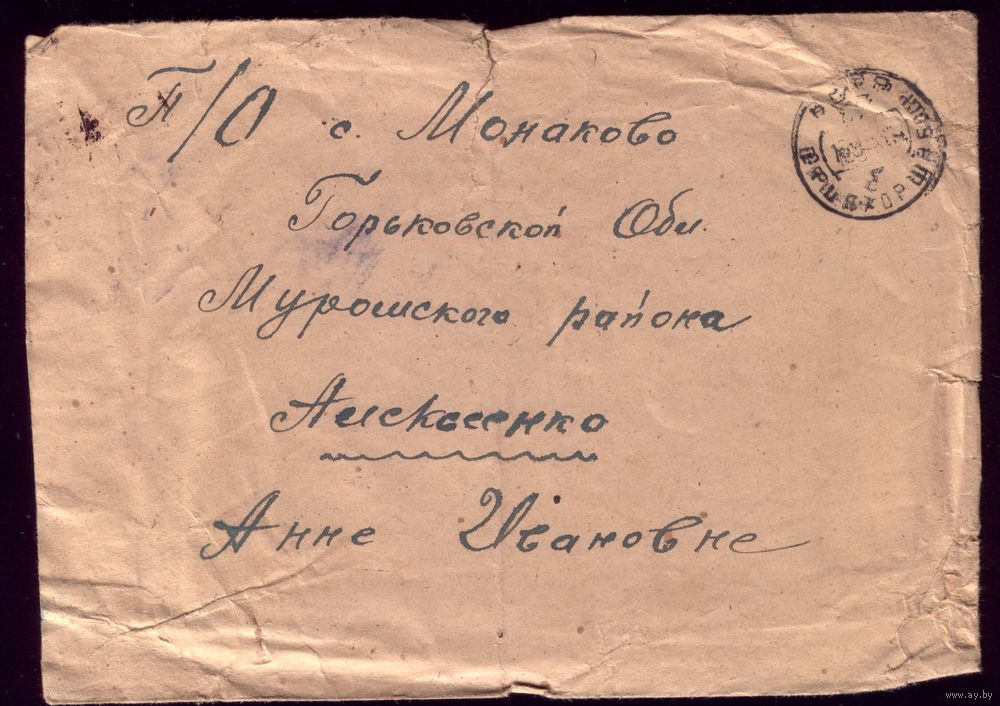 П/О с. Монаково
Горьковской Обл.
Мурошского района
Анне Ивановне
www.ay.by